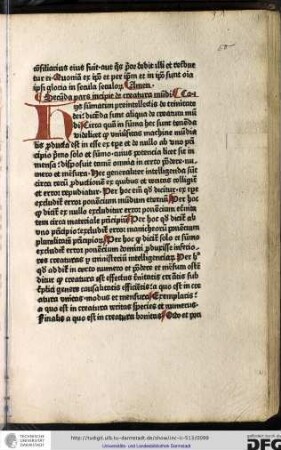 cōsiliarius eius fuit aut q̄s prior dedit illi et retribue
tur ei Quoniā ex ip̄o et per ip̄m et in ip̄o sunt oīa
ipsi gloria in secula seculoȝ Amen
Secūda pars incipit de creatura mūdi
His sūmatim preintellectis de trinitate
dei dicēda sunt aliqua de creatura mū
di Circa quam in sūma hec sunt tenēda
videlicet ꝙ vniuersitas machine mūdia
lis ꝓducta est in esse ex tpe et de nichilo ab vno prin
cipio primo solo et sūmo cuius potencia licet sit in
mensa disposuit tamen omnia in certo pōdere nu
mero et mēsura Hec generaliter intelligenda sūt
circa rerū ꝓductionē ex quibus et veritas colligit̄
et error repudiatur Per hoc enī qd̄ dicitur ex tpe
excludit̄ error ponēcium mūdum eternū Per hoc
ꝙ dicit̄ ex nichilo excluditur error ponēcium eterni
tatem circa materiale principiū Per hoc qd̄ dicit̄ ab
vno principio excludit̄ error manicheorū ponēcium
pluralitatē principioȝ Per hoc ꝙ dicit̄ solo et sūmo
excludit̄ error ponēcium deum produxisse inferio
res creaturas ꝑ ministeriū intelligenciaȝ Per hoc
qd̄ addit̄ in certo numero et pōdere et mēsura osten
ditur ꝙ creatura est effectus trinitatis creātis sub
triplici genere causalitatis efficiētis a quo est in crea
tura vnitas modus et mensura Exemplaris
a quo est in creatura veritas species et numerus
Finalis a quo est in creatura bonitas Ordo et pon
TECHNISCHE UNIVERSITÄT DARMSTADT
http://tudigit.ulb.tu-darmstadt.de/show/inc-ii-513/0099
Universitäts- und Landesbibliothek Darmstadt
DFG